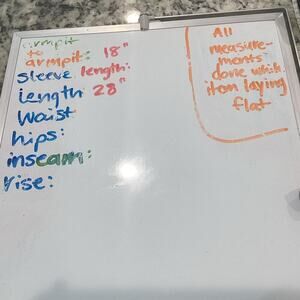 armpit
to
armpit: 18"
sleeve length:
length 28"
Waist
hips:
inseam:
rise:
All
measure-
ments
done while
item laying
flat